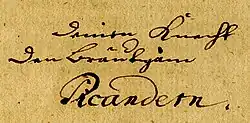 deinen Knecht
den Bräutgam
Picandern.